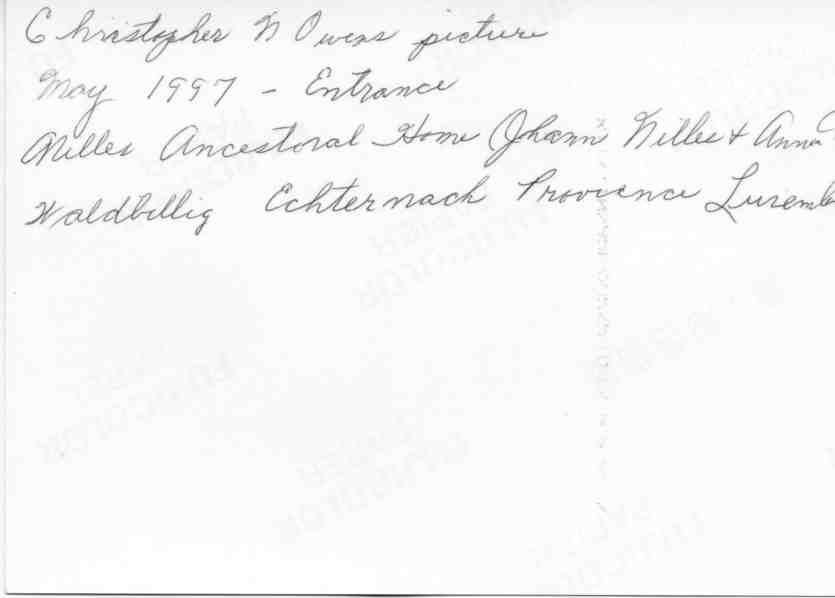 Christopher N Owens picture
May 1997 - Entrance
Nilles Ancestoral Home (Johann Nilles + Anna
Waldbillig Echternach Provience Luxemb